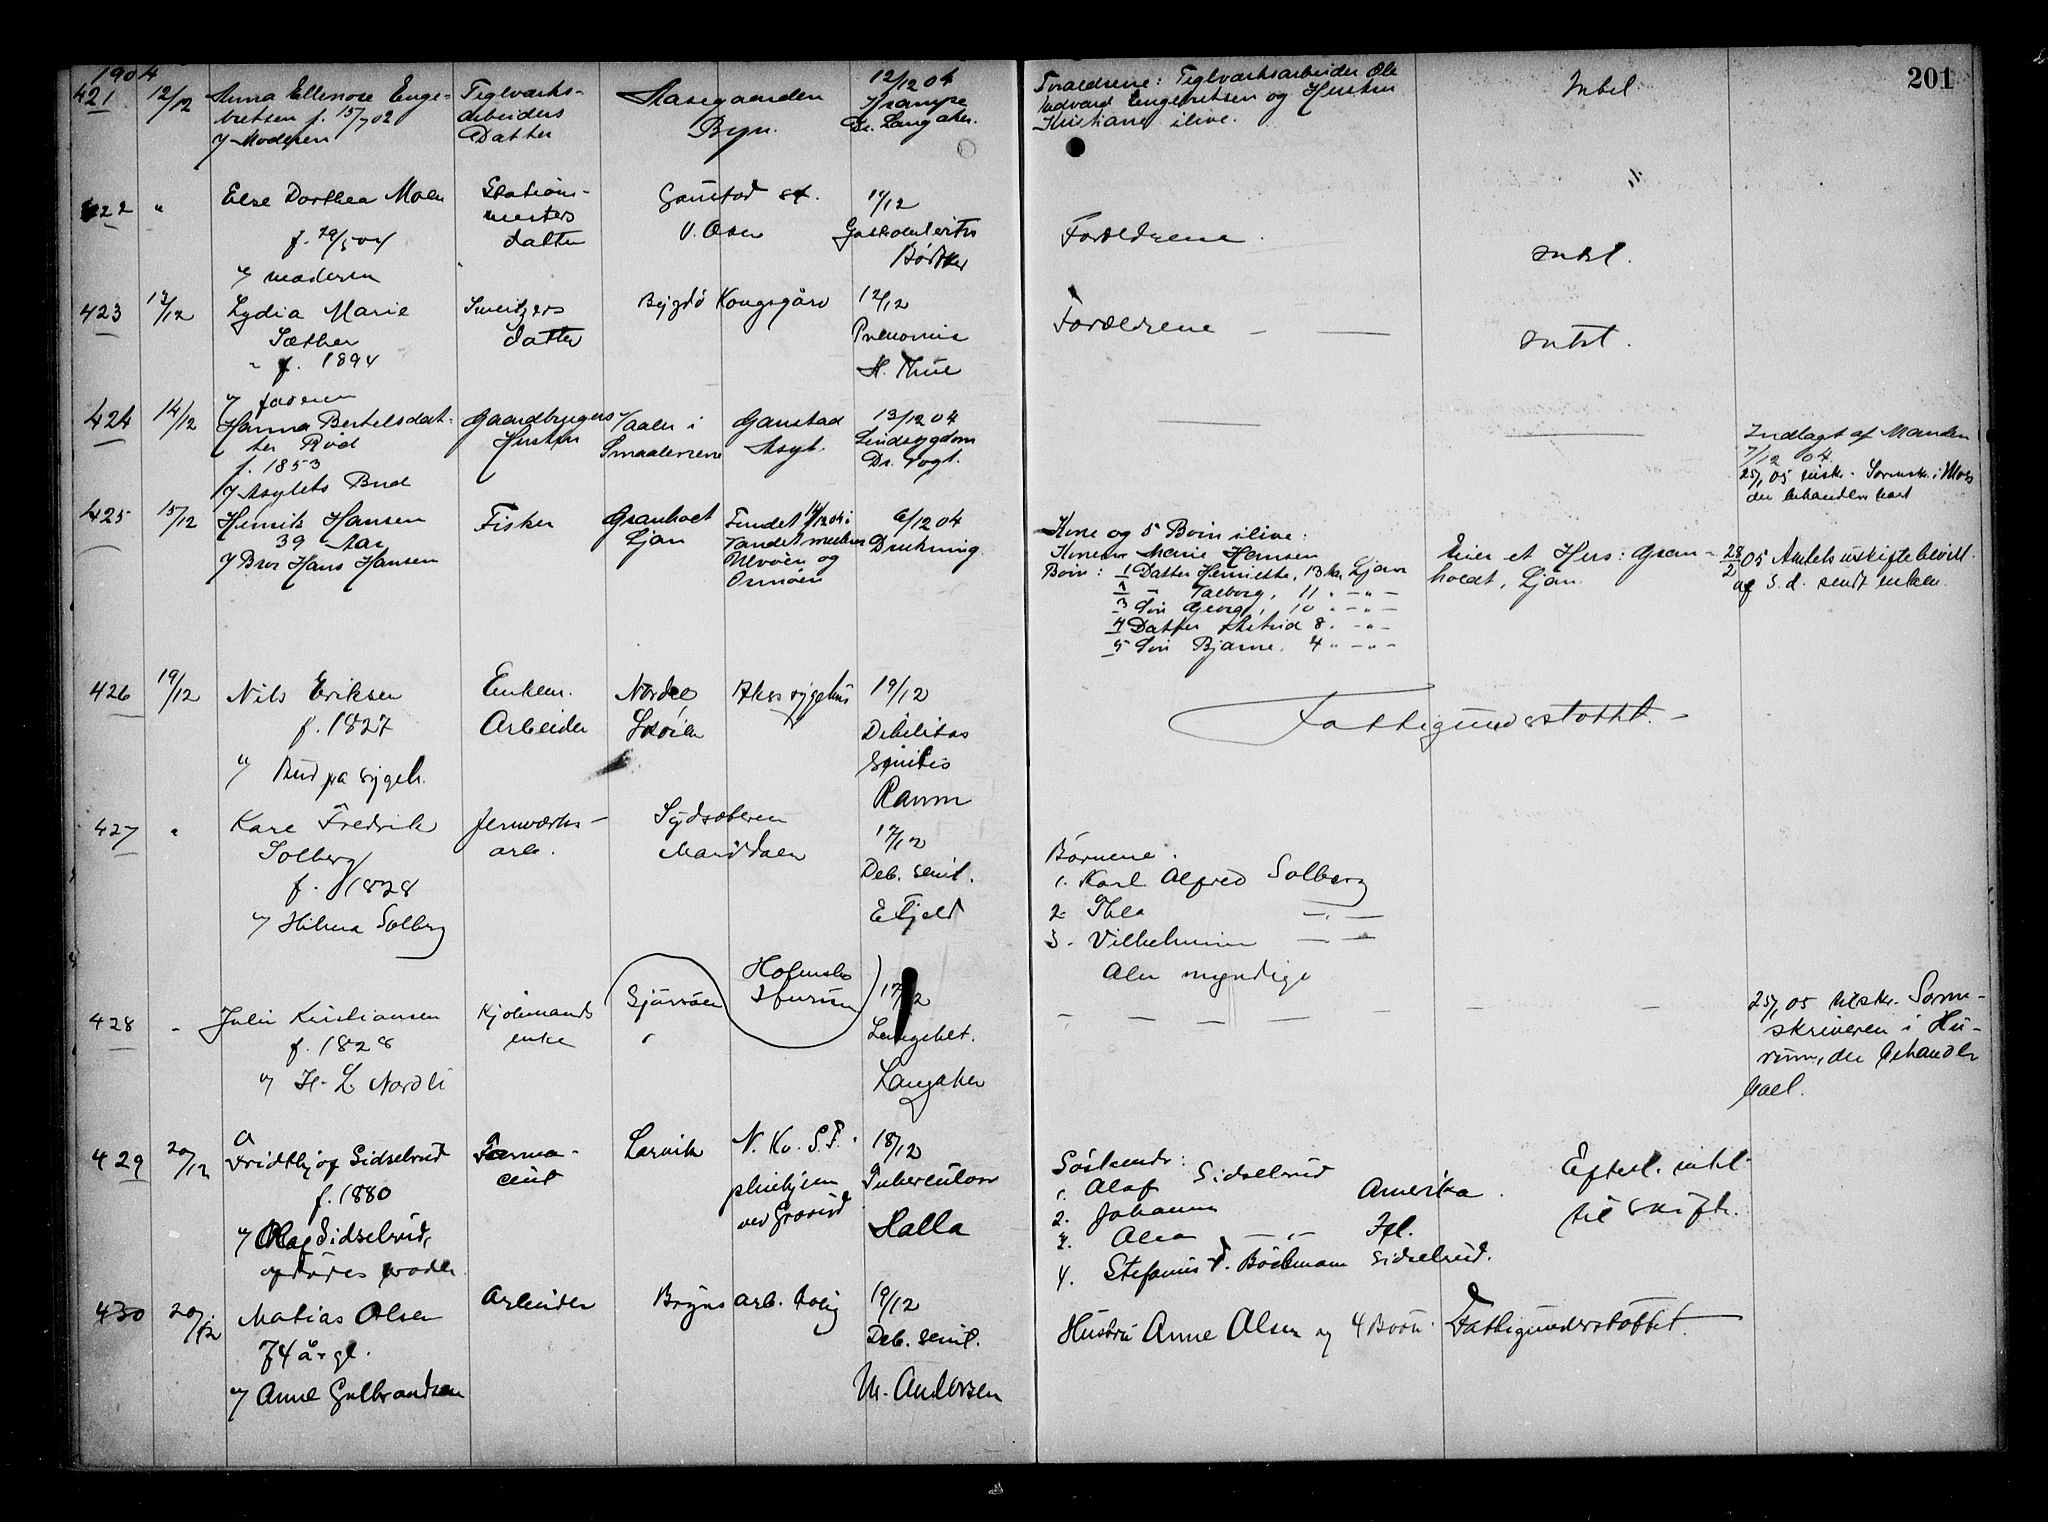 201
1904
421
12/12
Anna Ellenore Enge-
bretsen f. 15/7 02
v/ Moderen
Teglværks-
arbeiders
Datter
Aasegaarden
Bryn.
12/12 04
Krampe
Dr. Langaker.
Forældrene: Teglværksarbeider Ole
Edvard Engebretsen og Hustru
Kristiane ilive.
Intet.
422
"
Else Dorthea Moen
f. 29/5 04
v/ moderen
Stations-
mesters
datter
Gaustad st.
V. Aker
11/12
Bødtker
Forældrene.
intet.
423
13/12
Lydia Marie
Sæther
f. 1894
v/ faderen
Sveitzers
datter
Bygdø Kongsgård
12/12
Pneumoni
H. Thue
Forældrene
intet.
424
14/12
Hanna Bertelsdat-
ter Rød
f. 1853
v/ Asylets Bud
Gaardbrugers
Hustru
Vaaler i
Smaalenene
Gaustad
Asyl.
13/12 04
Sindsygdom
Dr. Vogt.
Indlagt af Manden
7/12 04.
25/1 05 tilskr. Sorenskr. i Moss
der behandler boet
425
15/12
Henrik Hansen
39 Aar
v/ Bror Hans Hansen
Fisker
Granholt
Ljan
Fundet 14/12 04 i
Vandet mellem
Ulvøen og
Ormøen
6/12 04
Drukning.
Kone og 5 Børn ilive:
Konen Marie Hansen
Børn: 1 Datter Henriette, 13 Aar, Ljan
2 " Valborg, 11 " — " —
3 Søn Georg, 10 " — " —
4 Datter Astrid 8 " — " —
5 Søn Bjarne, 4 " — " —
Eier et Hus: Gran-
holdt, Ljan.
28/2 05 Amtets uskiftebevill.
af s. d. sendt enken.
426
19/12
Nils Eriksen
f. 1827
v/ Bud fra sygeh.
Enkem.
Arbeider
Nordre
Skøien
Akers sygehus
19/12
Debilitas
senilis
Ravn
Fattigunderstøttet.
427
"
Kare Fredrik
Solberg
f. 1828
v/ Hilma Solberg
Jernværks-
arb.
Sydsæteren
Maridalen
17/12
Deb. senil.
E Fjeld
Børnene.
1. Karl Alfred Solberg
2. Thea — " —
3. Vilhelmine — " —
Alle myndige
428
"
Julie Kristiansen
f. 1828
v/ H. L. Nordli
Kjørmands
enke
Holmsbo
Hurum
17/12
Langaker
25/1 05 tilskr. Soren-
skriveren i Hu-
rum, der behandler
boet.
429
20/12
Fridthjof Sidselrud
f. 1880
v/ Olaf Sidselrud,
Farma-
ceut
Larvik
N. Kv. S. F.
pleiehjem
ved Grorud
18/12
Tuberculose
Halla
Søskende:
1. Olaf Sidselrud
2. Johanne Amerika.
3. Olea — " —
4. Stefanus Sidselrud.
Efterl. intet
til skifte.
430
20/12
Matias Olsen
74 år gl.
v/ Anne Gulbrandsen
Arbeider
Bryns arb. bolig
19/12
Deb. senil.
M. Andersen
Hustru Anne Olsen og 4 Børn.
Fattigunderstøttet.